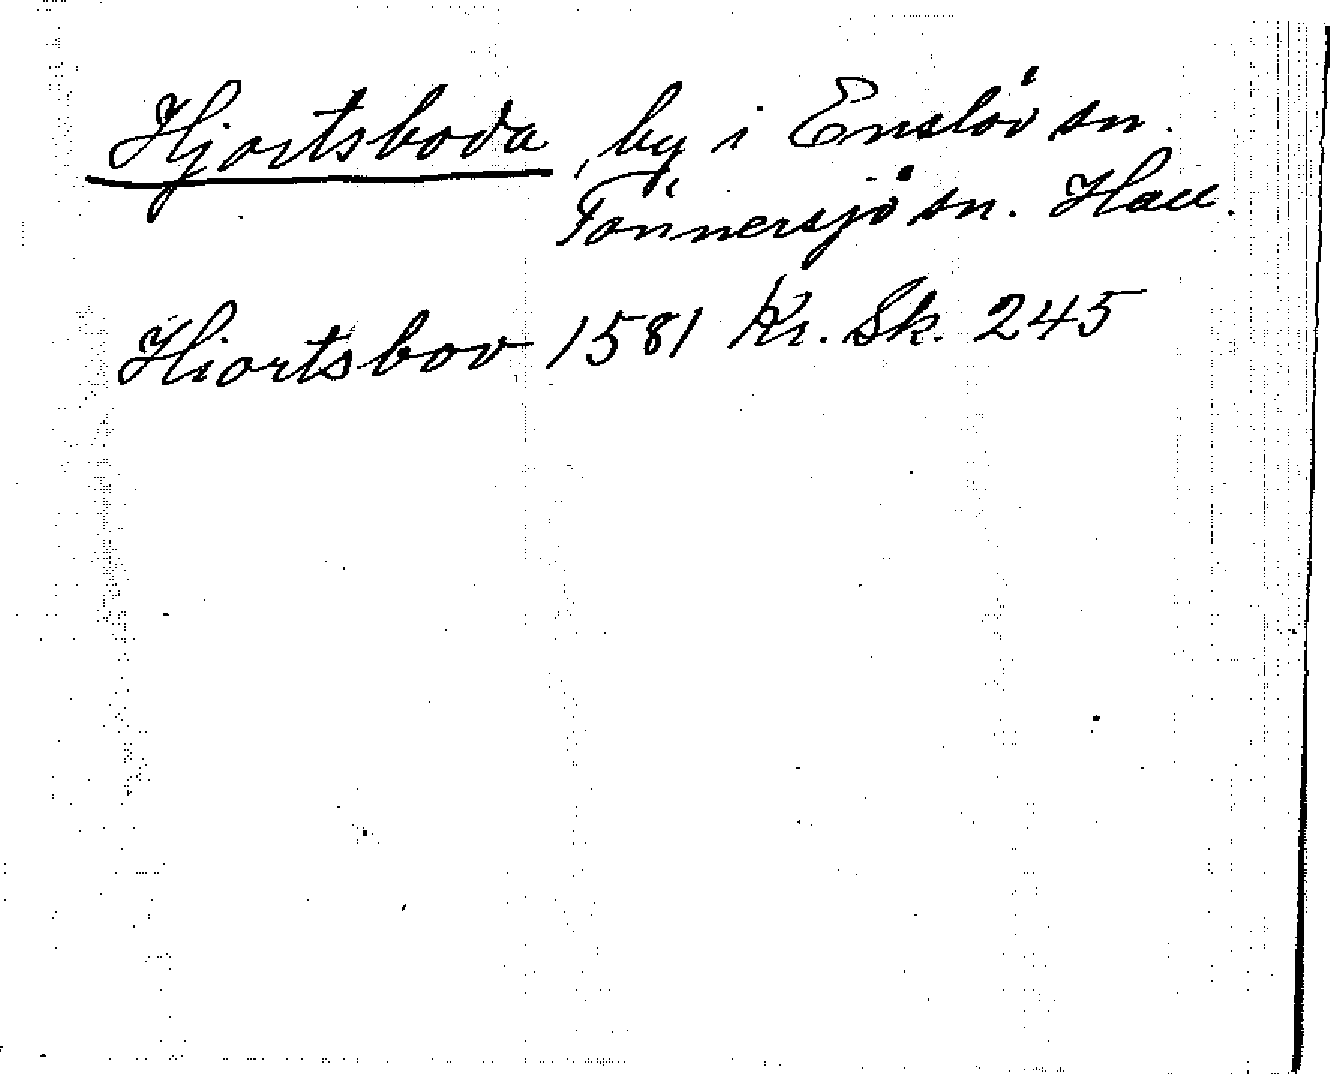 Hjortsboda, by i Enslöv sn.
Tönnersjö sn. Hall.
Hiortsbov 1581 Kr. Sk. 245